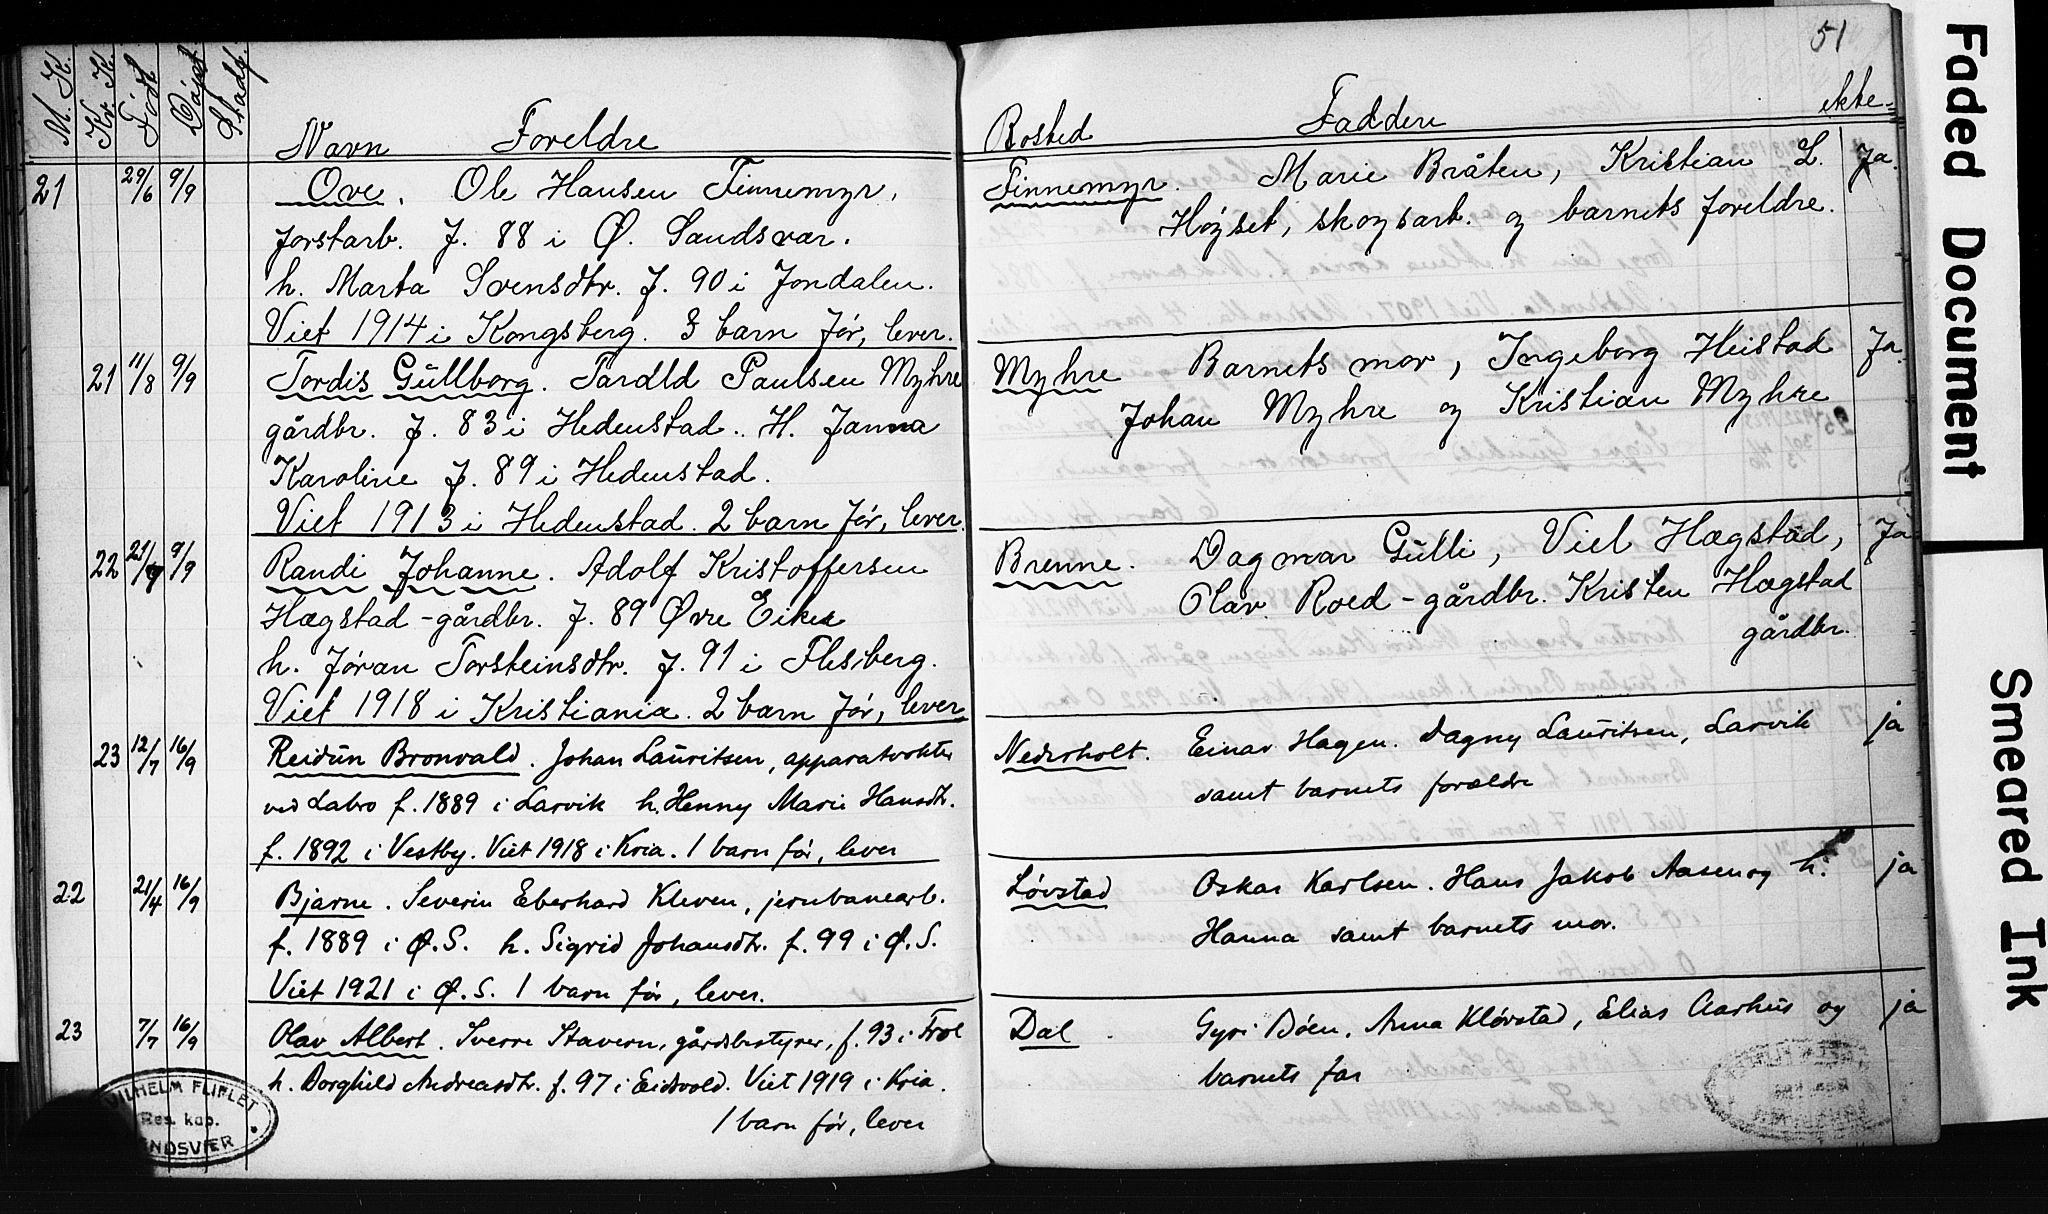 51
M. K. Kv. K. Født Døpt Stadf. Navn Foreldre
Bosted Faddere ekte
21 29/6 9/9 Ove. Ole Hansen Finnemyr,
forstarb. f. 88 i Ø. Sandsvær.
h. Marta Svensdtr. f. 90 i Jondalen.
Viet 1914 i Kongsberg. 3 barn før, lever.
Finnemyr. Marie Bråten, Kristian L. Ja.
Høyset, skogsarb. og barnets foreldre.
21 11/8 9/9 Tordis Gullborg. Paulsen Myhre
gårdbr. f. 83 i Hedenstad. H. Janna
Karoline f. 89 i Hedenstad.
Viet 1913 i Hedenstad. 2 barn før, lever.
Myhre Barnets mor, Ingeborg Heistad Ja.
Johan Myhre og Kristian Myhre
22 21/7 9/9 Randi Johanne. Adolf Kristoffersen
Hægstad - gårdbr. f. 89 Øvre Eiker
h. Jøran Torsteinsdtr. f. 91 i Flesberg.
Viet 1918 i Kristiania. 2 barn før, lever.
Brenne. Dagmar Gulli, Viel Hægstad, Ja
Olav Roed - gårdbr. Kristen Hægstad
gårdbr.
23 12/7 16/9 Reidun Bronvald. Johan Lauritsen, apparatvokter
ved Labro f. 1889 i Larvik h. Henny Marie Hansdtr.
f. 1892 i Vestby. Viet 1918 i Kria. 1 barn før, lever
Nederholt. Einar Hagen. Dagny Lauritsen, Larvik ja
samt barnets forældre
22 21/4 16/9 Bjarne. Severin Eberhard Kleven, jernbanearb.
f. 1889 i Ø.S. h. Sigrid Johansdtr. f. 99 i Ø.S.
Viet 1921 i Ø.S. 1 barn før, lever.
Løvstad Oskar Karlsen. Hans Jakob Aasen og h. ja
Hanna samt barnets mor.
23 7/7 16/9 Olav Albert. Sverre Stavern, gårdsbestyrer, f. 93 i Frol
h. Borghild Andreasdtr. f. 97 i Eidsvold. Viet 1919 i Kria.
1 barn før, lever
Dal Gyri Bøen, Anna Kløvstad, Elias Aarhus og ja
barnets far
VILHELM FLIFLET
Res. kap.
SANDSVÆR
Faded Document
Smeared Ink